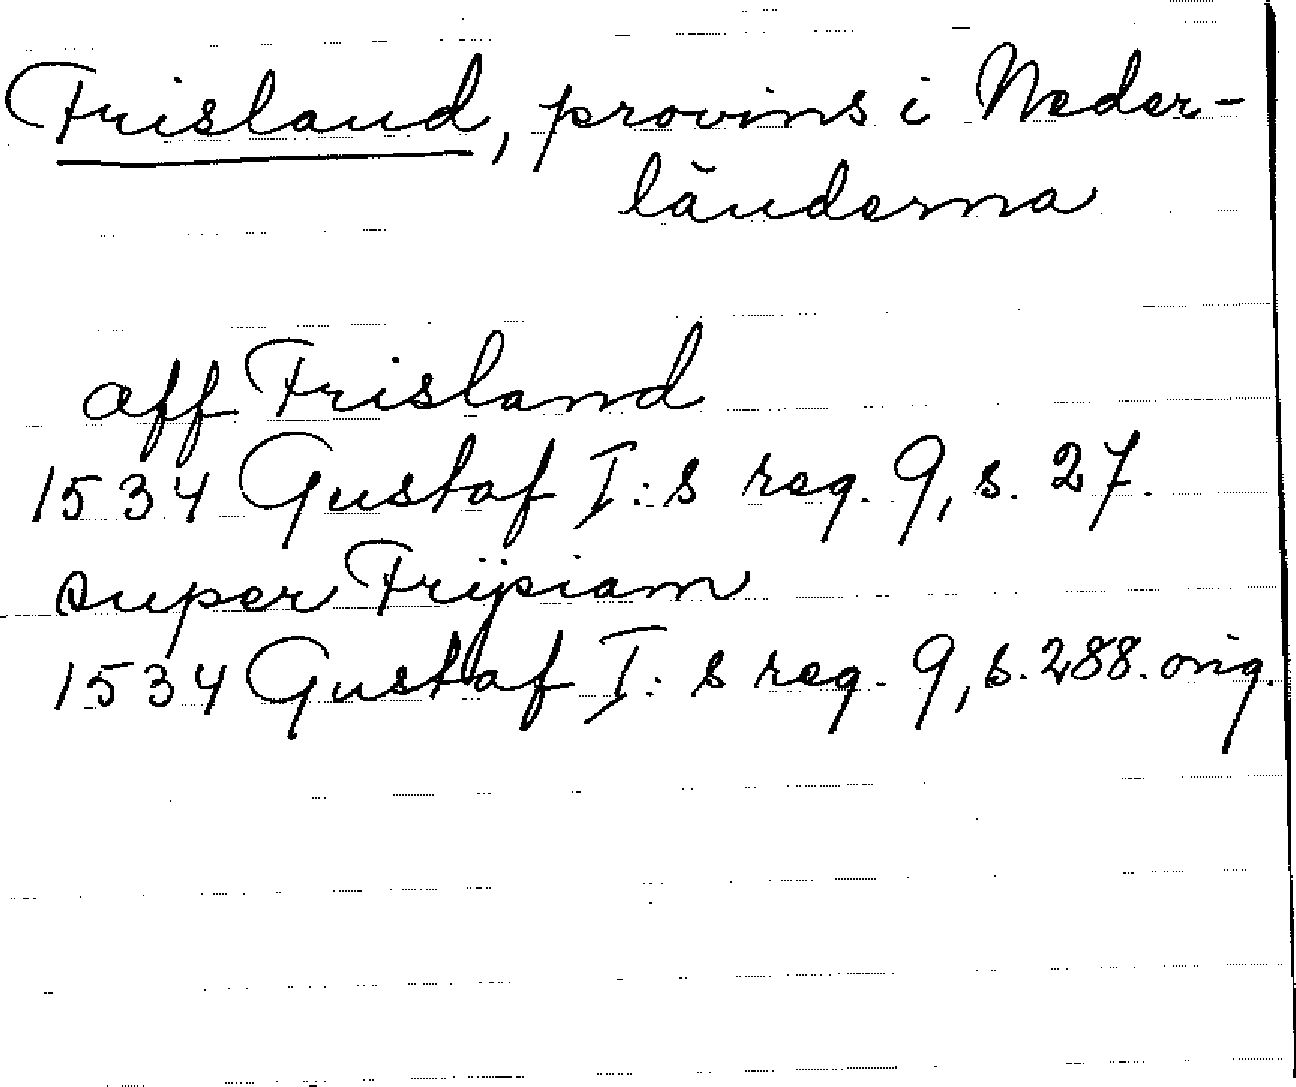 Frisland, provins i Neder-
länderna
aff Frisland
1534 Gustaf I:s reg. 9, s. 27.
super Frijsiam
1534 Gustaf I:s reg. 9, s. 288. orig.